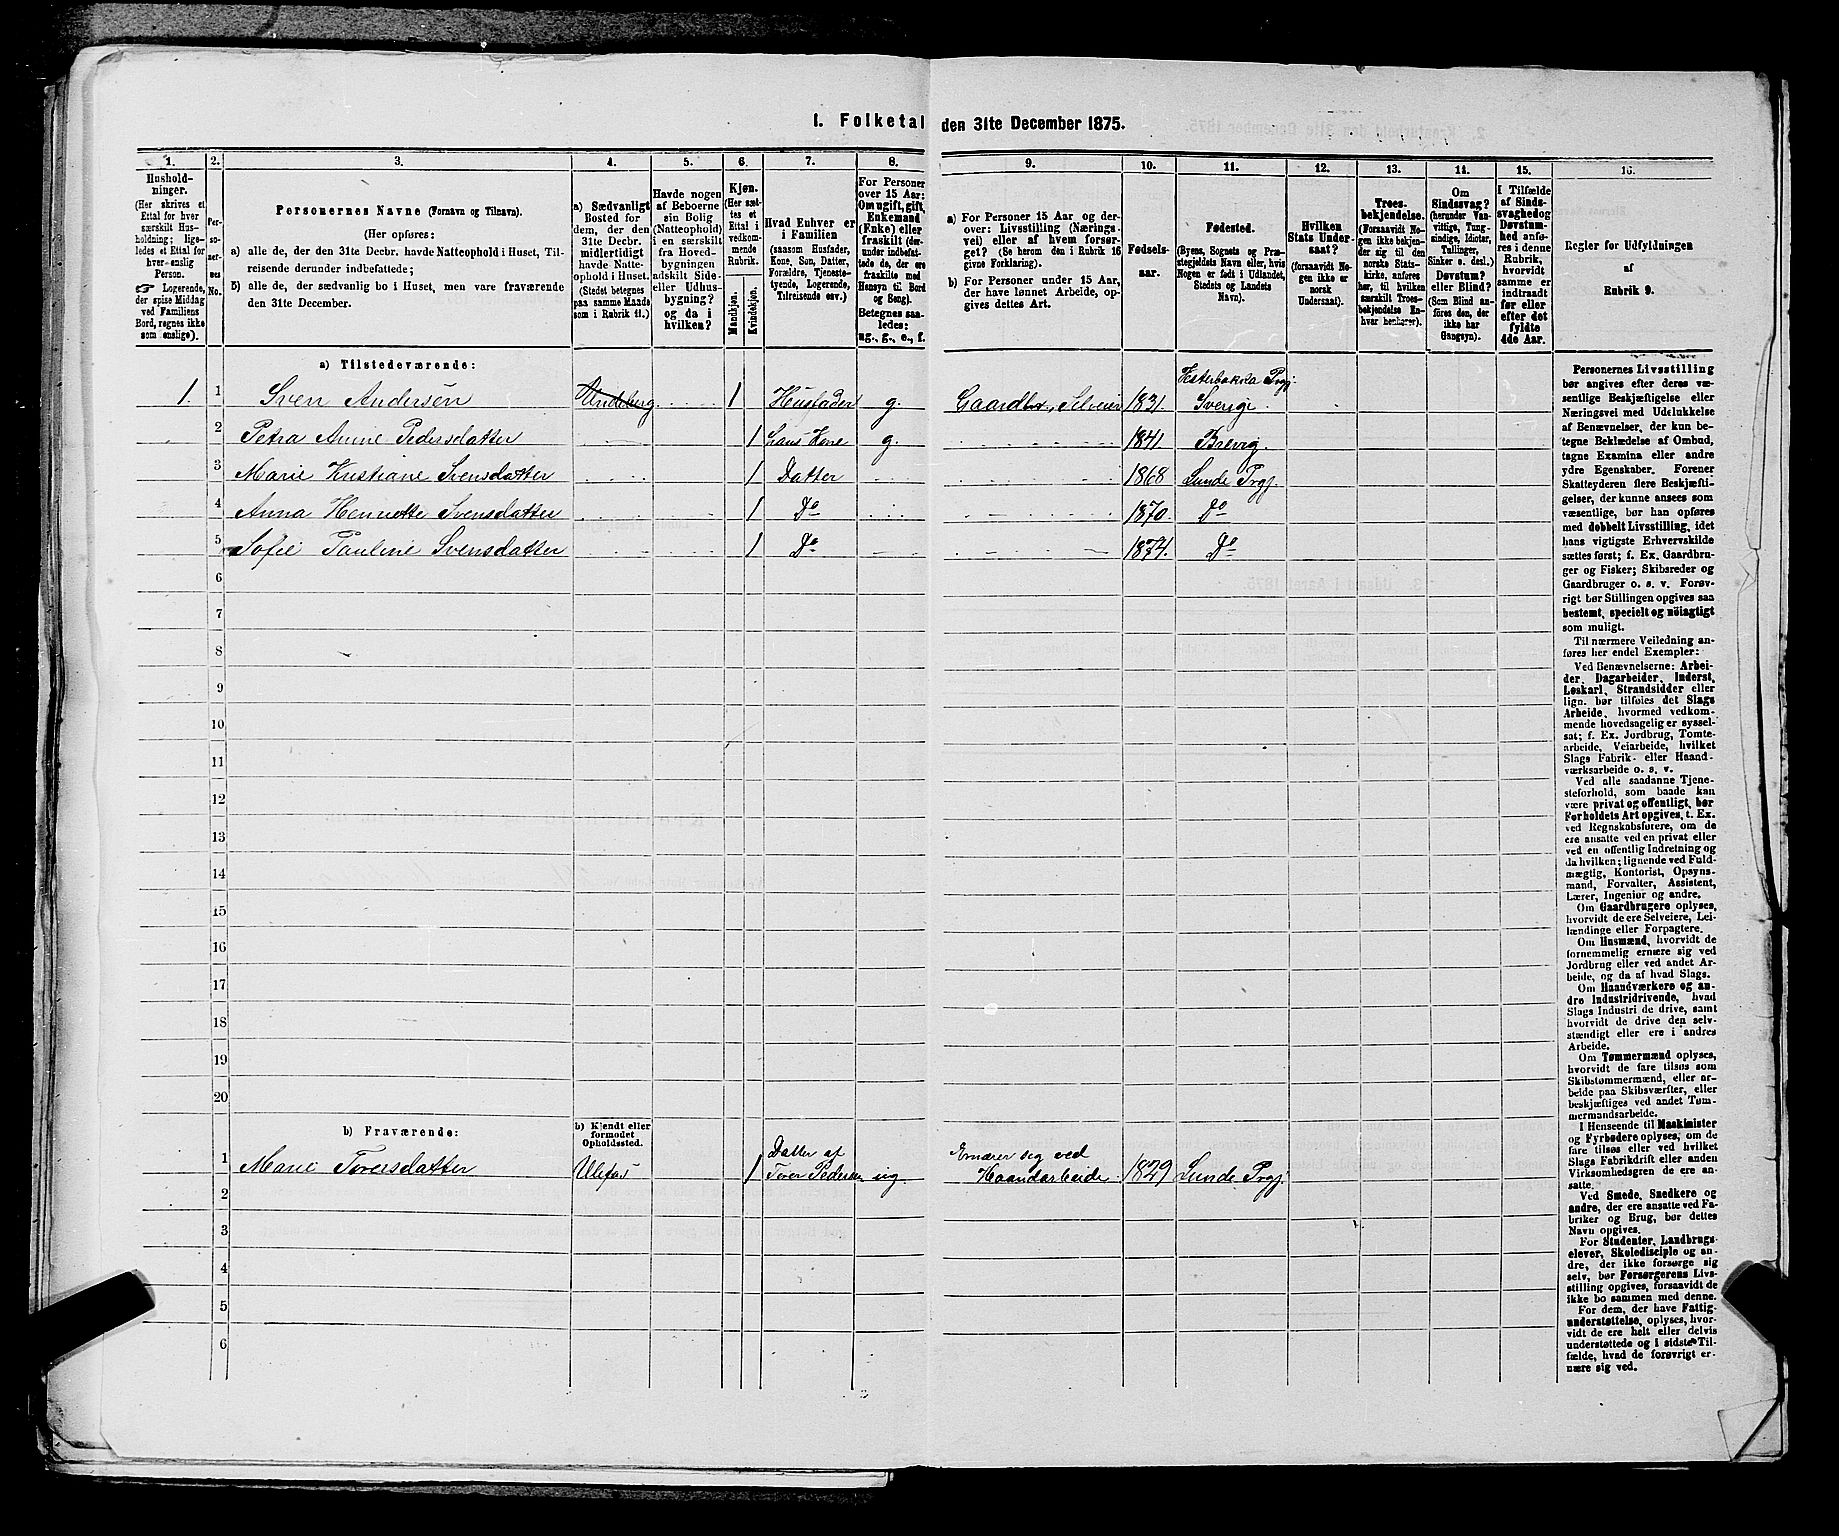 1. Folketal den 31te December 1875.
1. 2. 3. 4. 5. 6. 7. 8. 9. 10. 11. 12. 13. 14. 15. 16.
Hushold-
ninger.
(Her skrives et
Ettal for hver
særskilt Hus-
holdning; lige-
ledes et Ettal for
hver enslig
Person.
☞ Logerende,
der spise Middag
ved Familiens
Bord, regnes ikke
som enslige).
Per-
so-
ner-
nes
No.
Personernes Navne (Fornavn og Tilnavn).
(Her opføres:
a) alle de, der den 31te Decbr. havde Natteophold i Huset, Til-
reisende derunder indbefattede;
b) alle de, der sædvanlig bo i Huset, men vare fraværende
den 31te December.
a) Sædvanligt
Bosted for
dem, der den
31te Decbr.
midlertidigt
havde Natte-
ophold i Huset.
(Stedet betegnes
paa samme Maade
som i Rubrik 11.)
Havde nogen
af Beboerne
sin Bolig
(Natteophold)
i en særskilt
fra Hoved-
bygningen
adskilt Side-
eller Udhus-
bygning?
og da i
hvilken?
Kjøn.
(Her sæt-
tes et
Ettal i
vedkom-
mende
Rubrik.
Mandkjøn.
Kvindekjøn.
Hvad Enhver er
i Familien
(saasom Husfader,
Kone, Søn, Datter,
Forældre, Tjeneste-
tyende, Logerende,
Tilreisende osv.)
For Personer
over 15 Aar:
Om ugift, gift,
Enkemand
(Enke) eller
fraskilt (der-
under indbefat-
tede de, der ere
fraskilte med
Hensyn til Bord
og Seng).
Betegnes saa-
ledes:
ug., g., e., f.
a) For Personer 15 Aar og der-
over: Livsstilling (Nærings-
vei) eller af hvem forsør-
get? (Se herom den i Rubrik 16
givne Forklaring).
b) For Personer under 15 Aar,
der have lønnet Arbeide, op-
gives dettes Art.
Fødsels-
aar.
Fødested.
(Byens, Sognets og Præ-
stegjeldets Navn eller, hvis
Nogen er født i Udlandet,
Stedets og Landets
Navn).
Hvilken
Stats Under-
saat?
(forsaavidt No-
gen ikke er
norsk
Undersaat).
Troes-
bekjendelse.
(Forsaavidt No-
gen ikke bekjen-
der sig til den
norske Stats-
kirke, anføres
her, til hvilken
særskilt Troes-
bekjendelse En-
hver henhører).
Om
Sindssvag?
(herunder Van-
vittige, Tung-
sindige, Idioter,
Tullinger,
Sinker o. desl.)
Døvstum?
eller Blind?
(Som Blind an-
føres den, der
ikke har
Gangsyn).
I Tilfælde
af Sinds-
svaghed og
Døvstum-
hed anfø-
res i denne
Rubrik,
hvorvidt
samme er
indtraadt
før eller
efter det
fyldte
4de Aar.
Regler for Udfyldningen
af
Rubrik 9.
a) Tilstedeværende:
1. 1 Sven Andersen Undeberg 1 Husfader g. Gaardbr, Selveier 1831. Vesterbakola Prgj.
Sverige
2 Petra Anne Pedersdatter 1 hans Kone g. 1841 Brevig.
3 Marie Kristiane Svensdatter 1 Datter 1868 Lunde Prgj.
4 Anna Henriette Svensdatter 1 Do 1870. Do
5 Sofie Pauline Svensdatter 1 Do 1874. Do
6
7
8
9
10
11
12
13
14
15
16
17
18
19
20
b) Fraværende:
b) Kjendt eller
formodet
Opholdssted.
1 Marie Toversdatter Ulefos 1 Datter af
Tover Pedersen ug. Ernærer sig ved
Haandarbeide. 1829 Lunde Prgj.
2
3
4
5
6
Personernes Livsstilling
bør angives efter deres væ-
sentlige Beskjæftigelse eller
Næringsvei med Udelukkelse
af Benævnelser, der kun be-
tegne Beklædelse af Ombud,
tagne Examina eller andre
ydre Egenskaber. Forener
Skatteyderen flere Beskjæfti-
gelser, der kunne ansees som
væsentlige, bør han opføres
med dobbelt Livsstilling, idet
hans vigtigste Erhvervskilde
sættes først; f. Ex. Gaardbru-
ger og Fisker; Skibsreder og
Gaardbruger o. s. v. Forøv-
rigt bør Stillingen opgives saa
bestemt, specielt og nöiagtigt
som muligt.
Til nærmere Veiledning an-
føres her endel Exempler:
Ved Benævnelserne: Arbei-
der, Dagarbeider, Inderst,
Løskarl, Strandsidder eller
lign. bør tilføies det Slags
Arbeide, hvormed vedkom-
mende hovedsagelig er syssel-
sat; f. Ex. Jordbrug, Tomte-
arbeide, Veiarbeide, hvilket
Slags Fabrik- eller Haand-
værksarbeide o. s. v.
Ved alle saadanne Tjene-
steforhold, som baade kan
være privat og offentligt, bør
Forholdets Art opgives, t. Ex.
ved Regnskabsførere, om de
ere ansatte ved en privat eller
ved en offentlig Indretning og
da hvilken; lignende ved Fuld-
mægtig, Kontorist, Opsyns-
mand, Forvalter, Assistent,
Lærer, Ingeniør og andre.
Om Gaardbrugere oplyses,
hvorvidt de ere Selveiere, Lei-
lændinge eller Forpagtere.
Om Husmænd, hvorvidt de
fornemmelig ernære sig ved
Jordbrug eller ved andet Ar-
beide, og da af hvad Slags.
Om Haandværkere og an-
dre Industridrivende, hvad
Slags Industri de drive, samt
hvorvidt de drive den selv-
stændigt eller ere i andres
Arbeide.
Om Tømmermænd oplyses,
hvorvidt de fare tilsøs som
Skibstømmermænd, eller ar-
beide paa Skibsværfter, eller
beskjæftiges ved andet Tøm-
mermandsarbeide.
I Henseende til Maskinister
og Fyrbødere oplyses, om de
fare tilsøs eller ved hvilket
Slags Fabrikdrift eller anden
Virksomhedsgren de ere an-
satte.
Ved Smede, Snedkere og
andre, der ere ansatte ved Fa-
briker og Brug, bør dettes
Navn opgives.
For Studenter, Landbrugs-
elever, Skoledisciple og an-
dre, der ikke forsørge sig
selv, bør Forsørgerens Livs-
stilling opgives, forsaavidt de
ikke bo sammen med denne.
For dem, der have Fattig-
understøttelse, oplyses, hvor-
vidt de ere helt eller delvis
understøttede og i sidste Til-
fælde, hvad de forøvrigt er-
nære sig ved.